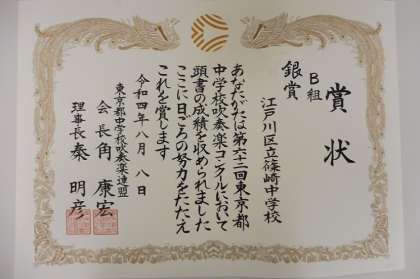 賞状
B組
銀賞
江戸川区立篠崎中学校
あなたがたは第六十二回東京都
中学校吹奏楽コンクールにおいて
頭書の成績を収められました
ここに日ごろの努力をたたえ
これを賞します
令和四年八月八日
東京都中学校吹奏楽連盟
会長角康宏
理事長秦明彦